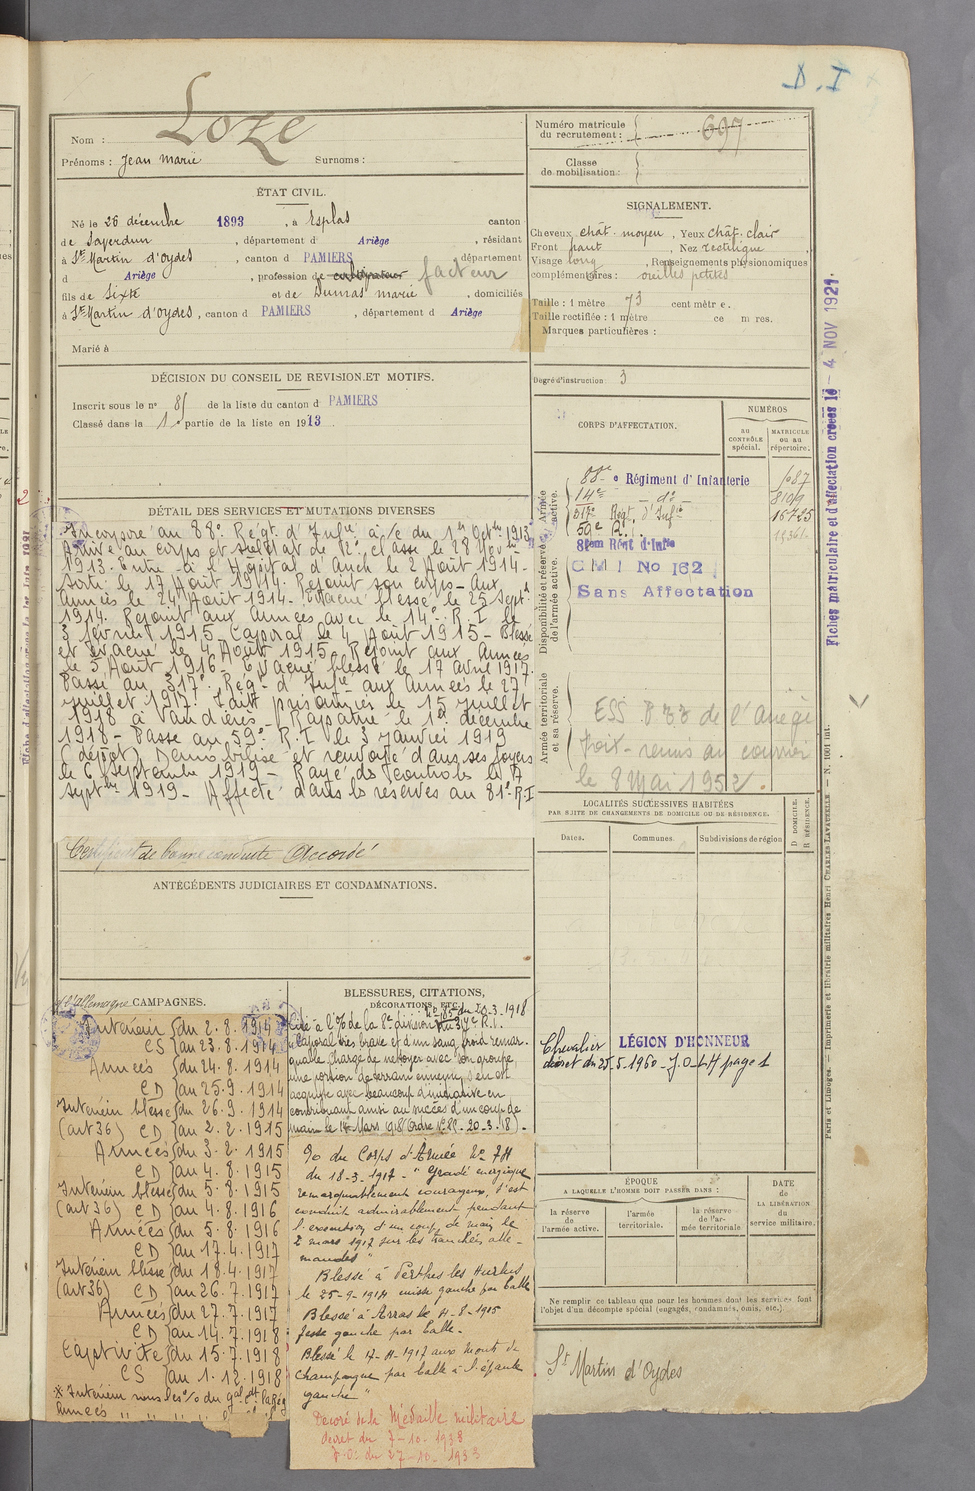 D.I
Loze
Nom :
Prénoms : Jean Marie Surnoms :
Numéro matricule du recrutement : 697
Classe de mobilisation :
ÉTAT CIVIL.
Né le 26 décembre 1893, à Esplas canton
de Saverdun, département d Ariège, résidant
à St Martin d'oydes, canton d PAMIERS département
d Ariège, profession de cultivateur facteur
fils de Sixte et de Dumas marie, domiciliés
à St Martin d'oydes, canton d PAMIERS, département d Ariège
Marié à
SIGNALEMENT.
Cheveux chât. moyen, Yeux chât. clair
Front haut, Nez rectiligne
Visage long, Renseignements physionomiques
complémentaires : oreilles petites
Taille : 1 mètre 73 centimètres.
Taille rectifiée : 1 mètre
Marques particulières :
Degré d'instruction : 3
DÉCISION DU CONSEIL DE REVISION ET MOTIFS.
Inscrit sous le n° 85 de la liste du canton d PAMIERS
Classé dans la 1e partie de la liste en 1913
DÉTAIL DES SERVICES ET MUTATIONS DIVERSES
Incorporé au 88e Régt d'Infie à/c du 1er Octbre 1913
Arrivé au corps et soldat de 2e classe le 28 Novbre
1913. Entré à l'Hôpital d'Auch le 2 Août 1914 -
Sorti le 17 Août 1914. Rejoint son corps aux
Armées le 24 Août 1914 - Evacué blessé le 25 Septt
1914. Rejoint aux armées avec le 14e R.I. le
3 février 1915 Caporal le 4 Août 1915 - Blessé
et évacué le 4 Août 1915. Rejoint aux Armées
le 5 Août 1916. Evacué blessé le 17 avril 1917.
Passé au 317e Régt d'Infie aux Armées le 27
juillet 1917. Fait prisonnier le 15 juillet
1918 à Vandières - Rapatrié le 1er décembre
1918 - Passé au 59e R.I. le 3 janvier 1919
(dépôt) Démobilisé et renvoyé dans ses foyers
le 6 Septembre 1919 - Rayé des contrôles le 7
Septbre 1919 - Affecté dans les réserves au 81e R.I
Certificat de bonne conduite Accordé
ANTÉCÉDENTS JUDICIAIRES ET CONDAMNATIONS.
CORPS D'AFFECTATION.
NUMÉROS
AU CONTRÔLE spécial.
MATRICULE ou au répertoire.
Disponibilité et réserve de l'armée active.
Armée active.
88e Régiment d'Infanterie 1087
14e - do - 8109
317e Régt d'Infie 16725
59e R.I.
81em Rént d'Infie
CMI No 162
Sans Affectation
Armée territoriale et sa réserve.
ESS P33 de l'Ariège
le 8 Mai 1952.
LOCALITÉS SUCCESSIVES HABITÉES
PAR SUITE DE CHANGEMENTS DE DOMICILE OU DE RÉSIDENCE.
Dates. Communes. Subdivisions de région
D DOMICILE.
R RÉSIDENCE.
Chevalier LÉGION D'HONNEUR
décret du 25-5-1960 - J.O-LH page 1
ÉPOQUE
A LAQUELLE L'HOMME DOIT PASSER DANS :
la réserve de l'armée active.
l'armée territoriale.
la réserve de l'armée territoriale
DATE de LA LIBÉRATION du service militaire.
Ne remplir ce tableau que pour les hommes dont les services font
l'objet d'un décompte spécial (engagés, condamnés, omis, etc.).
St Martin d'Oydes
Fiches matriculaire et d'affectation créées le - 4 NOV 1921.
Paris et Limoges. — Imprimerie et librairie militaires Henri CHARLES-LAVAUZELLE. — N. 1601 int.
CAMPAGNES.
c/ l'allemagne
Intérieur du 2.8.1914
CS au 23.8.1914
Armées du 24.8.1914
CD au 25.9.1914
Intérieur blessé du 26.9.1914
(art 36) CD au 2.2.1915
Armées du 3.2.1915
CD au 4.8.1915
Intérieur blessé du 5.8.1915
(art 36) CD au 4.8.1916
Armées du 5.8.1916
CD au 17.4.1917
Intérieur blessé du 18.4.1917
(art 36) CD au 26.7.1917
Armées du 27.7.1917
CD au 14.7.1918
Captivité du 15.7.1918
CS au 1.12.1918
BLESSURES, CITATIONS,
DÉCORATIONS, ETC.
no 85 du 20-3-1918
Cité à l'O/ de la 2e division
Caporal très brave et d'un sang froid remar-
quable. Chargé de nettoyer avec son groupe,
une portion de terrain ennemi, s'en est
acquitté avec beaucoup d'initiative en
contribuant ainsi au succès d'un coup de
main le 14 Mars 1918 (Ordre No 85 - 20-3-18) -
90 du Corps d'Armée No 74
du 18-3-1917 - "Gradé énergique
remarquablement courageux, s'est
conduit admirablement pendant
l'exécution d'un coup de main le
2 mars 1917 sur les tranchées alle-
mandes"
Blessé à Perthes les Hurlus
le 25-9-1914 cuisse gauche par balle
Blessé à Arras le 4-8-1915
fesse gauche par balle.
Blessé le 17-4-1917 aux Monts de
champagne par balle à l'épaule
gauche"
Décoré de la Médaille militaire
décret du 7-10-1933
J.O. du 27-10-1933